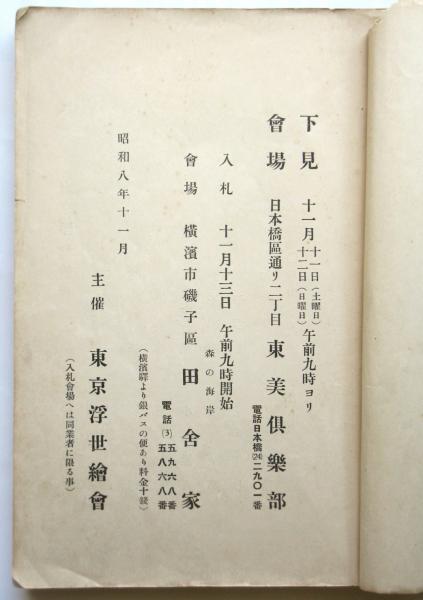 下見 十一月 十一日(土曜日) 十二日(日曜日) 午前九時ヨリ
會場 日本橋區通リ二丁目 東美俱樂部
電話日本橋(24)二九〇一番
入札 十一月十三日 午前九時開始
森の海岸
會場 橫濱市磯子區 田舍家
電話(3) 五九六八番 五八六八番
(橫濱驛より銀バスの便あり料金十錢)
昭和八年十一月
主催 東京浮世繪會
(入札會場へは同業者に限る事)